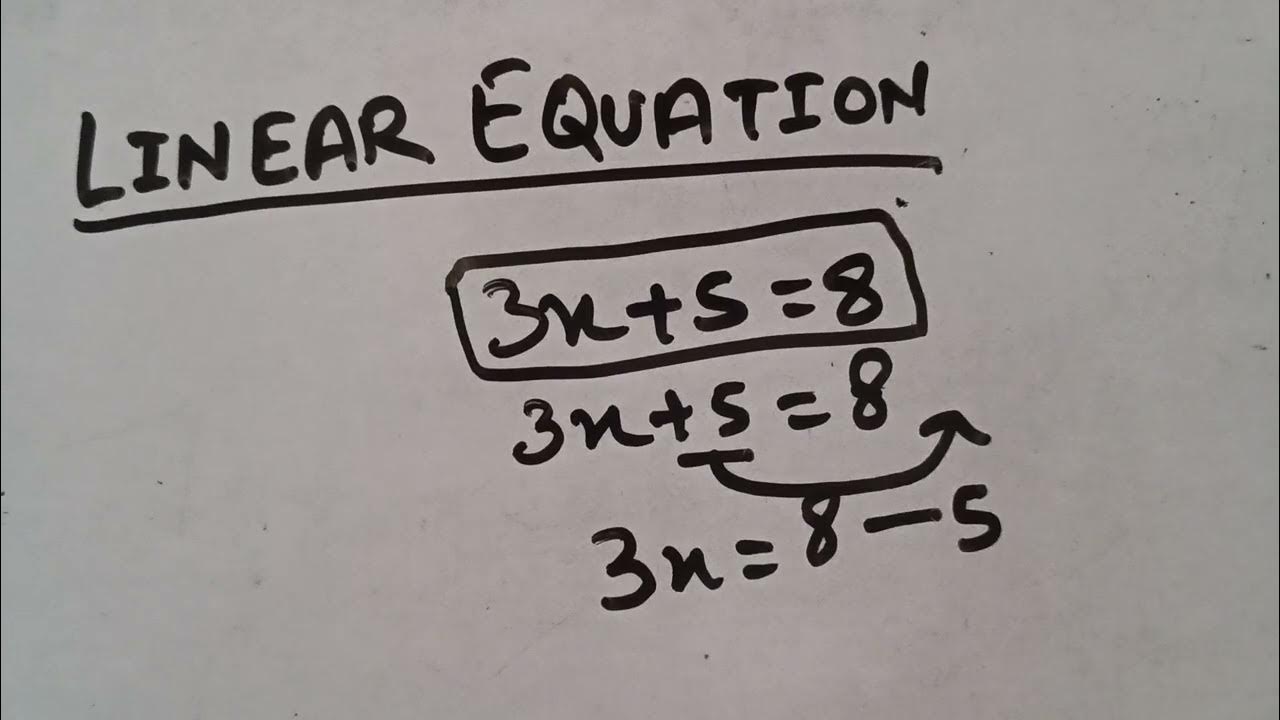 LINEAR EQUATION
3x+5=8
3x+5=8
3x=8-5